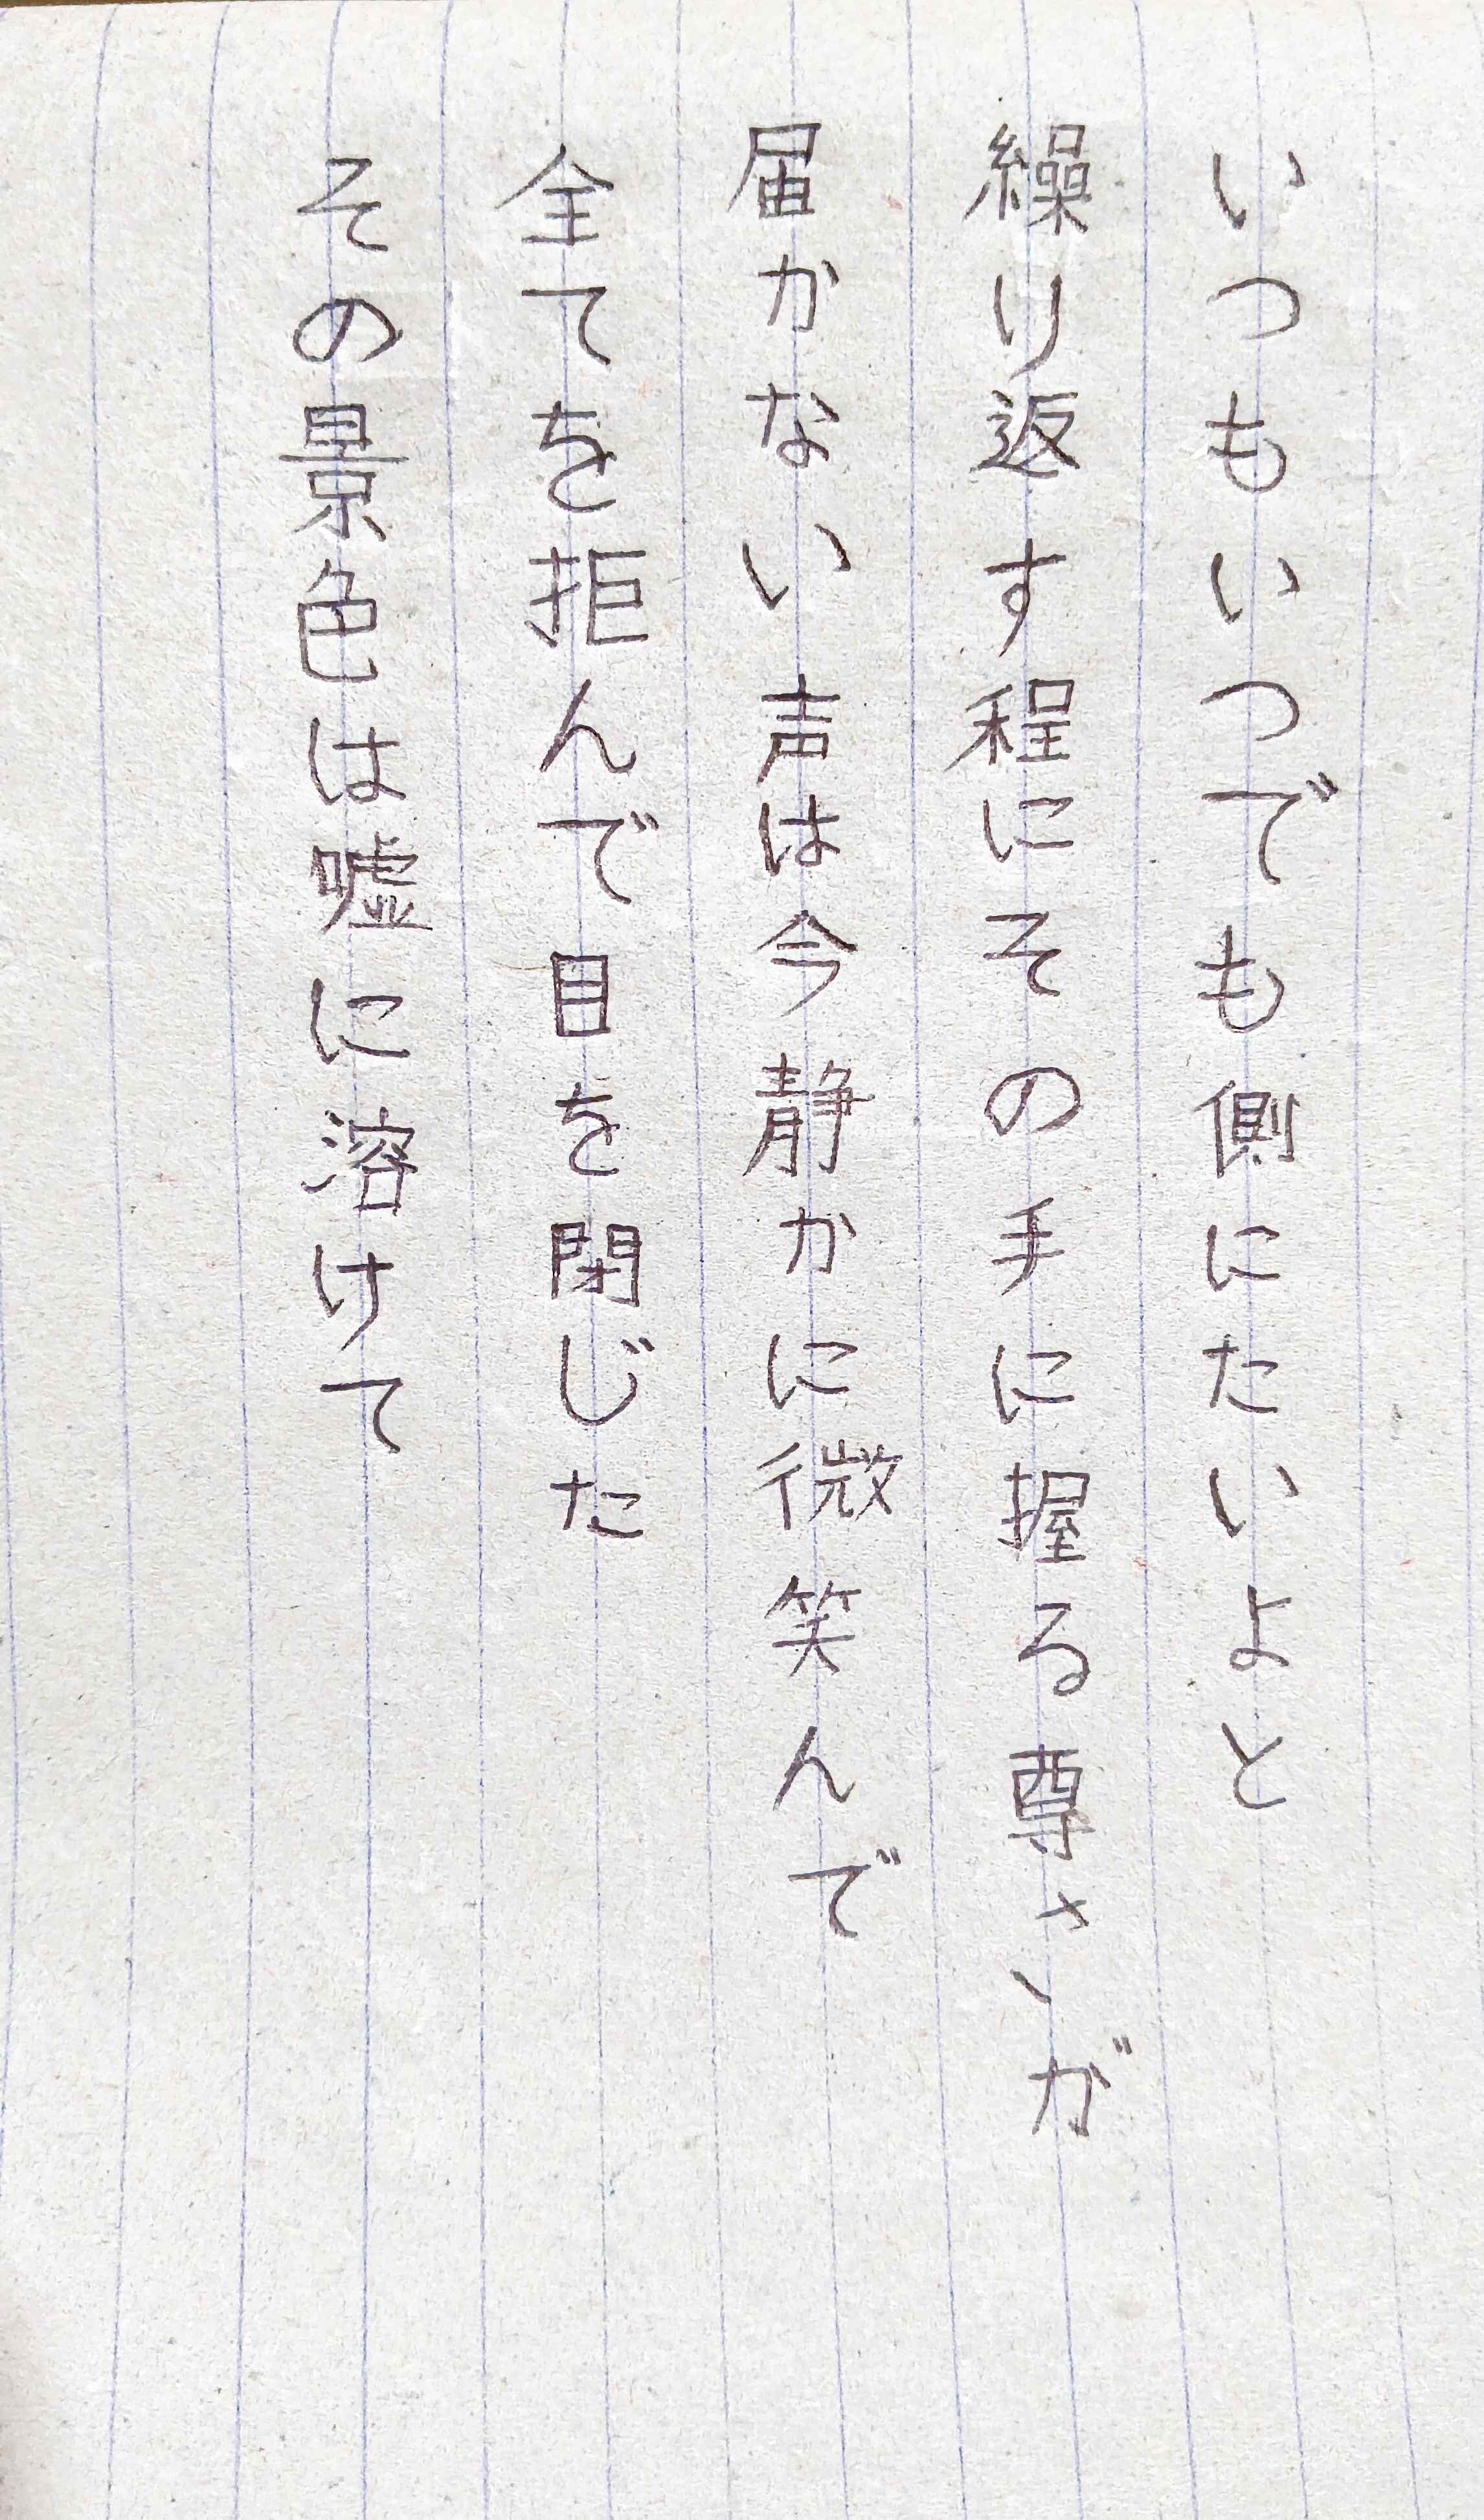 いつもいつでも側にたいよと
繰り返す程にその手に握る尊さが
届かない声は今静かに微笑んで
全てを拒んで目を閉じた
その景色は嘘に溶けて